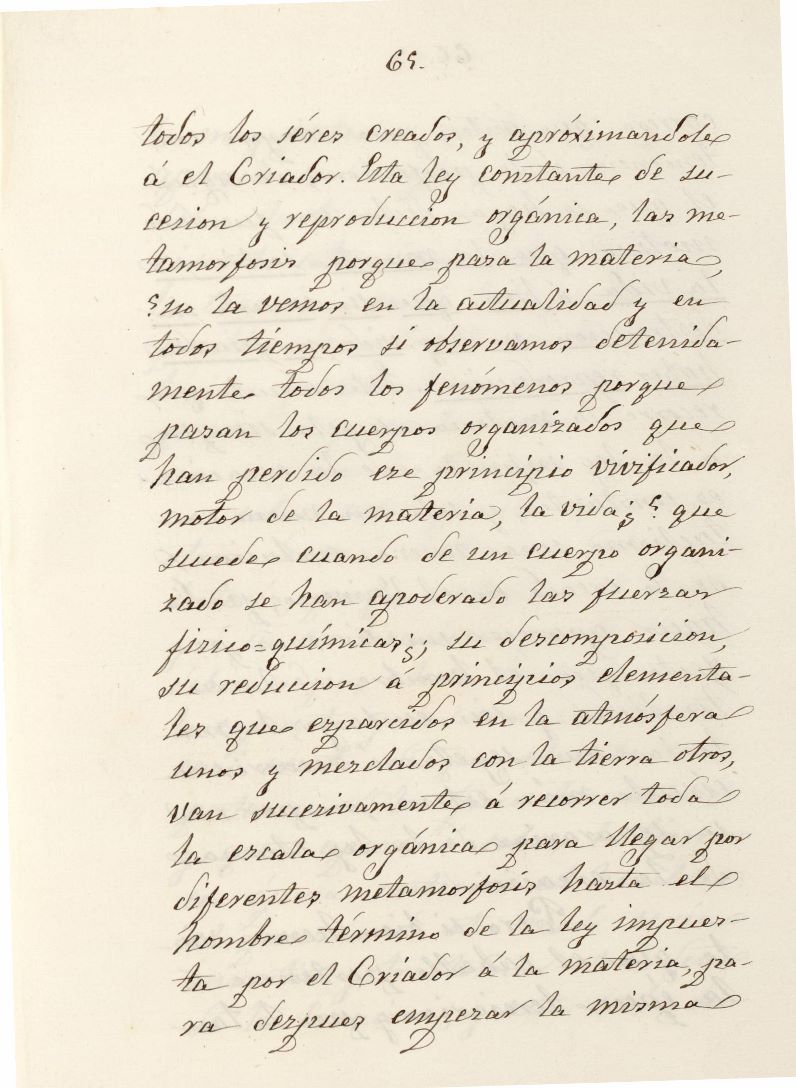 65.
todos los séres creados, y apróximandole
á el Criador. Esta ley constante de su-
cesion y reproduccion orgánica, las me-
tamorfosis porque pasa la materia,
¿no la vemos en la actualidad y en
todos tiempos si observamos detenida-
mente todos los fenómenos porque
pasan los cuerpos organizados que
han perdido ese principio vivificador,
motor de la materia, la vida? ¿que
sucede cuando de un cuerpo organi-
zado se han apoderado las fuerzas
fisico=químicas?; su descomposicion,
su reduccion á principios elementa-
les que esparcidos en la atmósfera
unos y mezclados con la tierra otros,
van sucesivamente á recorrer toda
la escala orgánica para llegar por
diferentes metamorfosis hasta el
hombre término de la ley impues-
ta por el Criador á la materia, pa-
ra despues empezar la misma